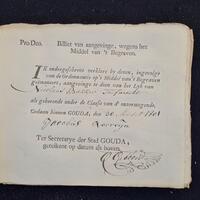 Pro Deo. Billet van aangevinge, wegens het
Middel van 't Begraven.
IK ondergeschreven verklare by deezen, ingevolge
van de Ordonnantie op 't Middel van 't Begraven
geëmaneert, aangevinge te doen van het Lyk van
als gehoorende onder de Classe van de onvermogende,
Gedaan binnen GOUDA, den
Jacobus
Ter Secretarye der Stad GOUDA,
getekent op datum als boven.